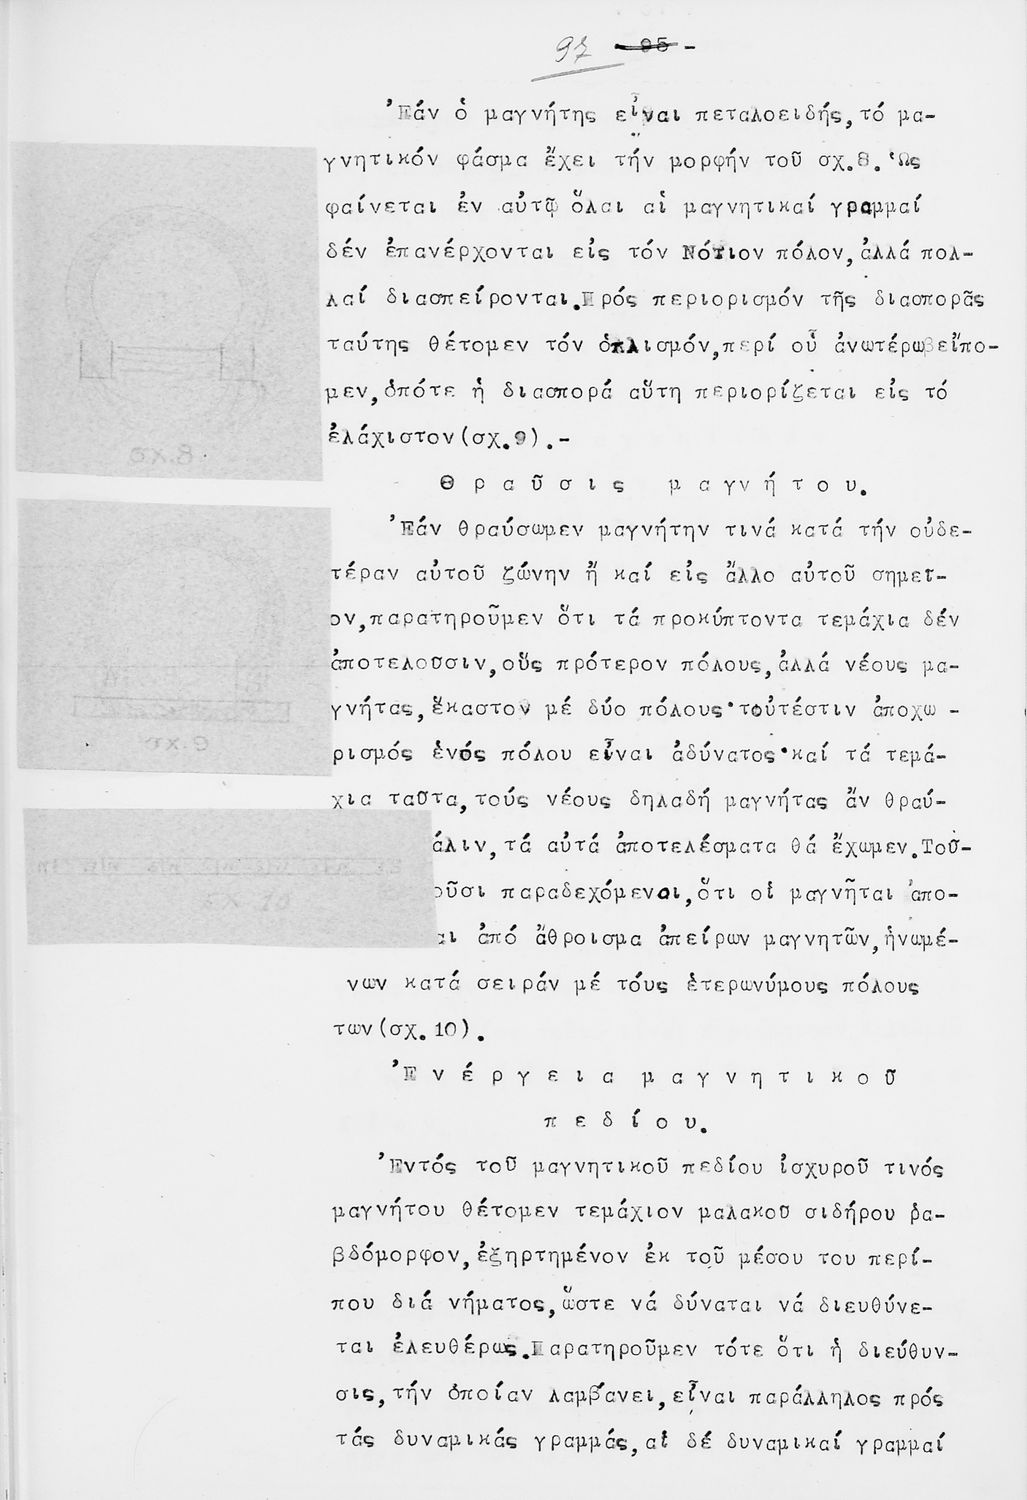 97 - 95 -
Ἐάν ὁ μαγνήτης εἶναι πεταλοειδής, τό μα-
γνητικόν φάσμα ἔχει τήν μορφήν τοῦ σχ.8. Ὡς
φαίνεται ἐν αὐτῷ ὅλαι αἱ μαγνητικαί γραμμαί
δέν ἐπανέρχονται εἰς τόν Νότιον πόλον, ἀλλά πολ-
λαί διασπείρονται. Πρός περιορισμόν τῆς διασπορᾶς
ταύτης θέτομεν τόν ὁπλισμόν, περί οὗ ἀνωτέρω εἴπο-
μεν, ὁπότε ἡ διασπορά αὕτη περιορίζεται εἰς τό
ἐλάχιστον (σχ.9).-
Θραῦσις μαγνήτου.
Ἐάν θραύσωμεν μαγνήτην τινά κατά τήν οὐδε-
τέραν αὐτοῦ ζώνην ἤ καί εἰς ἄλλο αὐτοῦ σημεῖ-
ον, παρατηροῦμεν ὅτι τά προκύπτοντα τεμάχια δέν
ἀποτελοῦσιν, οὕς πρότερον πόλους, ἀλλά νέους μα-
γνήτας, ἕκαστον μέ δύο πόλους· τοὐτέστιν ἀποχω -
ρισμός ἑνός πόλου εἶναι ἀδύνατος· καί τά τεμά-
χια ταῦτα, τούς νέους δηλαδή μαγνήτας ἄν θραύ-
άλιν, τά αὐτά ἀποτελέσματα θά ἔχωμεν. Τοῦ-
οῦσι παραδεχόμενοι, ὅτι οἱ μαγνῆται ἀπο-
αι ἀπό ἄθροισμα ἀπείρων μαγνητῶν, ἡνωμέ-
νων κατά σειράν μέ τούς ἑτερωνύμους πόλους
των (σχ. 10).
Ἐνέργεια μαγνητικοῦ
πεδίου.
Ἐντός τοῦ μαγνητικοῦ πεδίου ἰσχυροῦ τινός
μαγνήτου θέτομεν τεμάχιον μαλακοῦ σιδήρου ῥα-
βδόμορφον, ἐξηρτημένον ἐκ τοῦ μέσου του περί-
που διά νήματος, ὥστε νά δύναται νά διευθύνε-
ται ἐλευθέρως. Παρατηροῦμεν τότε ὅτι ἡ διεύθυν-
σις, τήν ὁποίαν λαμβάνει, εἶναι παράλληλος πρός
τάς δυναμικάς γραμμάς, αἱ δέ δυναμικαί γραμμαί